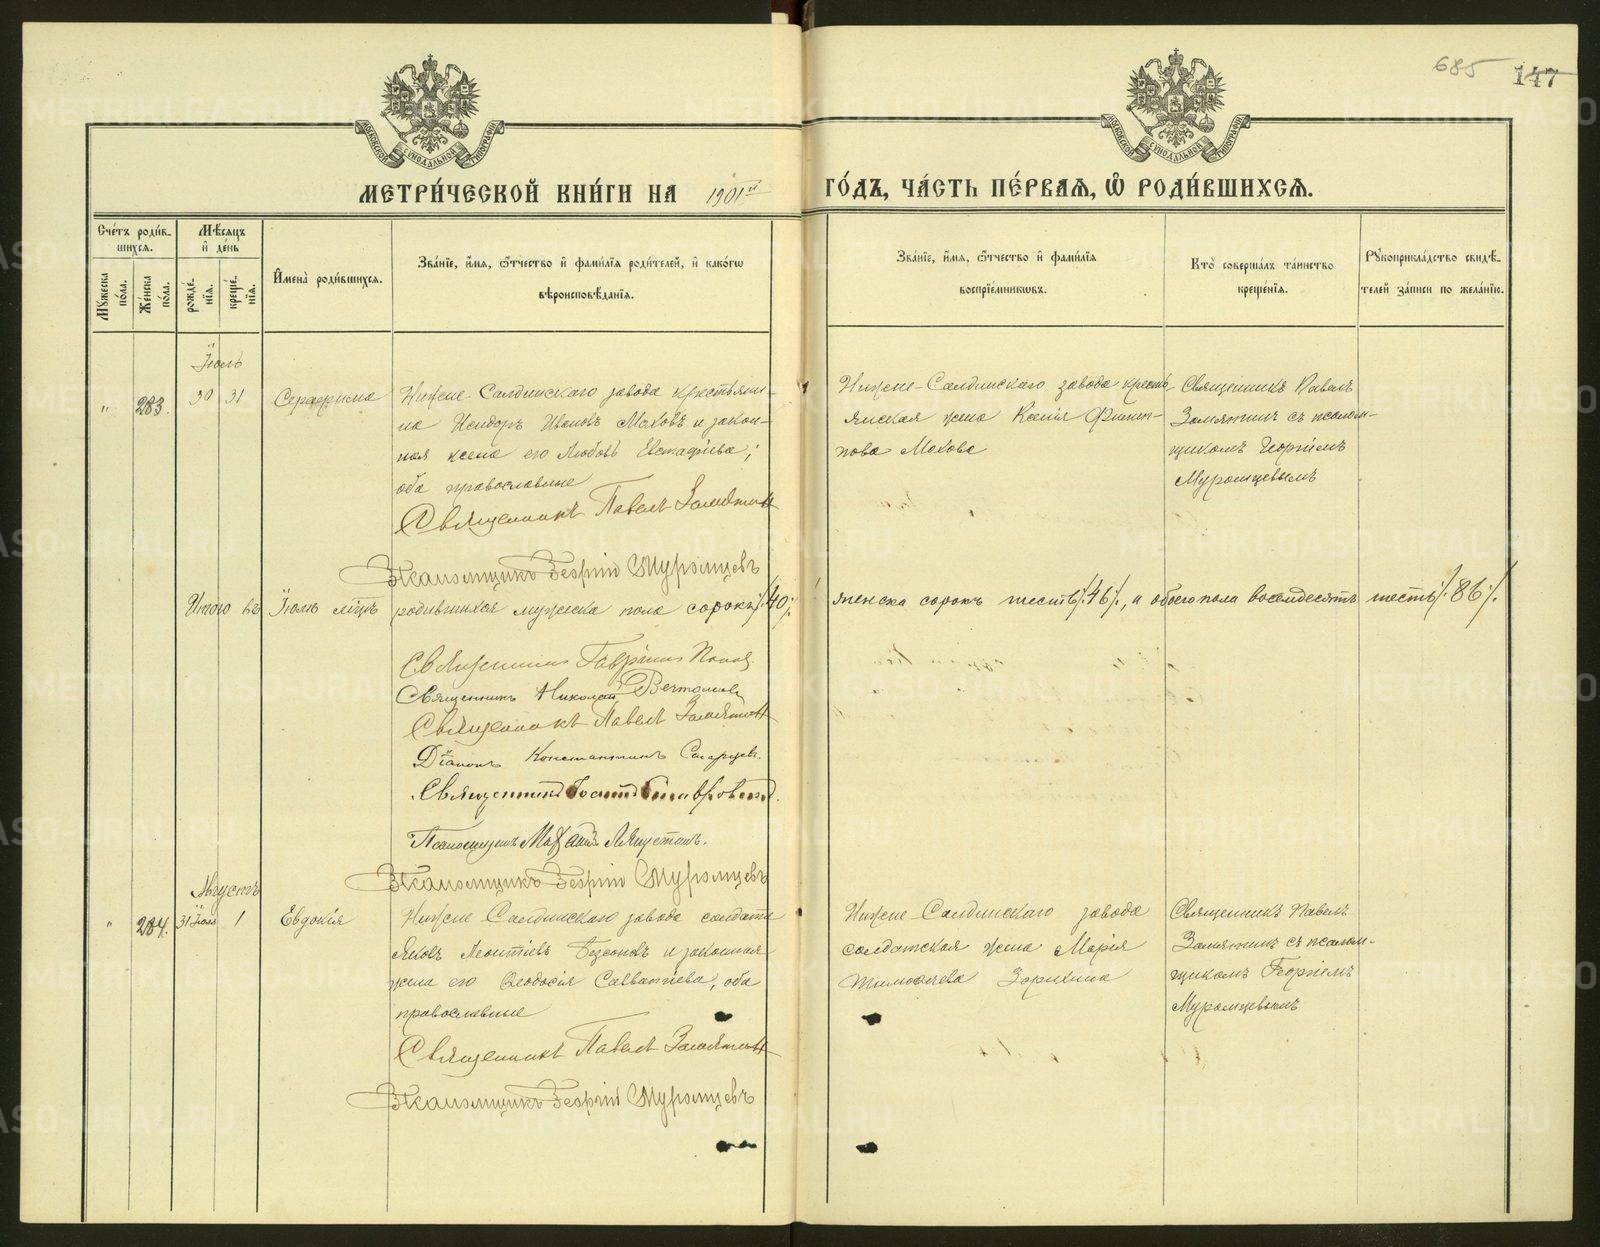 685 147
МОСКОВСКОЙ СѴНОДАЛЬНОЙ ТИПОГРАФІИ
МОСКОВСКОЙ СѴНОДАЛЬНОЙ ТИПОГРАФІИ
МЕТРИ́ЧЕСКОЙ КНИ́ГИ НА 1901й ГО́ДЪ, ЧА́СТЬ ПЕ́РВАѦ, Ѡ҆ РОДИ́ВШИХСѦ.
Сче́тъ роди́в-
шихсѧ.
Мꙋжеска по́ла.
Же́нска по́ла.
Мѣ́сѧцъ
и҆ де́нь
рожде́-
нїѧ.
креще́-
нїѧ.
И҆мена̀ роди́вшихсѧ.
Зва́нїе, и҆́мѧ, ѻ҆́тчество и҆ фами́лїѧ роди́телей, и҆ како́гѡ
вѣроисповѣ́данїѧ.
Зва́нїе, и҆́мѧ, ѻ҆́тчество и҆ фами́лїѧ
воспрїе́мникѡвъ.
Кто̀ соверша́лъ та́инство
креще́нїѧ.
Рꙋкоприкла́дство свидѣ́-
телей за́писи по жела́нїю.
Іюль
" 283. 30 31 Серафима
Нижне-Салдинскаго завода крестьяни-
на Исидоръ Ивановъ Моховъ и закон-
ная жена его Любовь Евстафіева;
оба православные
Священникъ Павелъ Замятин
Псаломщикъ Георгій Муромцевъ
Нижне-Салдинскаго завода кресть-
янская жена Ксенія Филип-
пова Мохова
Священникъ Павелъ
Замятинъ съ псалом-
щикомъ Георгіемъ
Муромцевымъ
Итого въ Іюлѣ м҃цѣ родившихся мужеска пола сорокъ /:40:/ женска сорокъ шесть /:46:/, и обоего пола восемдесятъ шесть /:86:/.
Священникъ Гавріилъ Попов.
Священникъ Николай
Священникъ Павелъ Замятин
Діаконъ Константинъ
Священникъ
Псаломщикъ
Псаломщикъ Георгій Муромцевъ
Августъ
" 284. 31 Іюля 1 Евдокія
Нижне-Салдинскаго завода солдата
Яковъ Леонтіевъ и законная
жена его Ѳеодосія Савватіева, оба
православные
Священникъ Павелъ Замятин
Псаломщикъ Георгій Муромцевъ
Нижне-Салдинскаго завода
солдатская жена Марія
Тимоѳеева Зорихина
Священникъ Павелъ
Замятинъ съ псалом-
щикомъ Георгіемъ
Муромцевымъ
METRIKI.GASO-URAL.RU